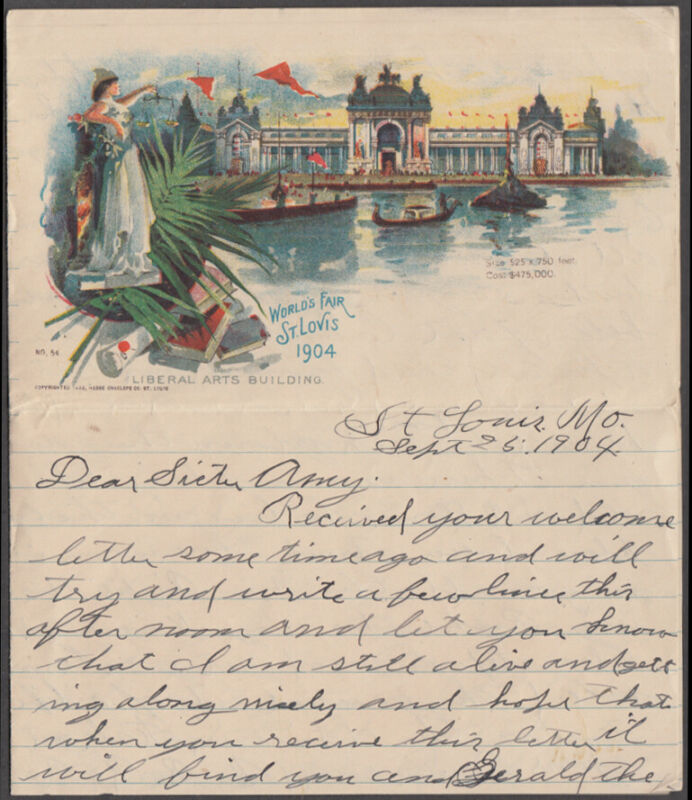 Size 525 x 750 feet.
Cost $475,000.
WORLD'S FAIR
ST. LOVIS
1904
NO. 54
LIBERAL ARTS BUILDING.
COPYRIGHTED HESSE ENVELOPE CO. ST. LOUIS
St Louis. Mo.
Sept 25. 1904.
Dear Sister Amy.
Received your welcome
letter some time ago and will
try and write a few lines this
after noon and let you know
that I am still alive and gett
ing along nicely and hope that
when you receive this letter it
will find you and Gerald the